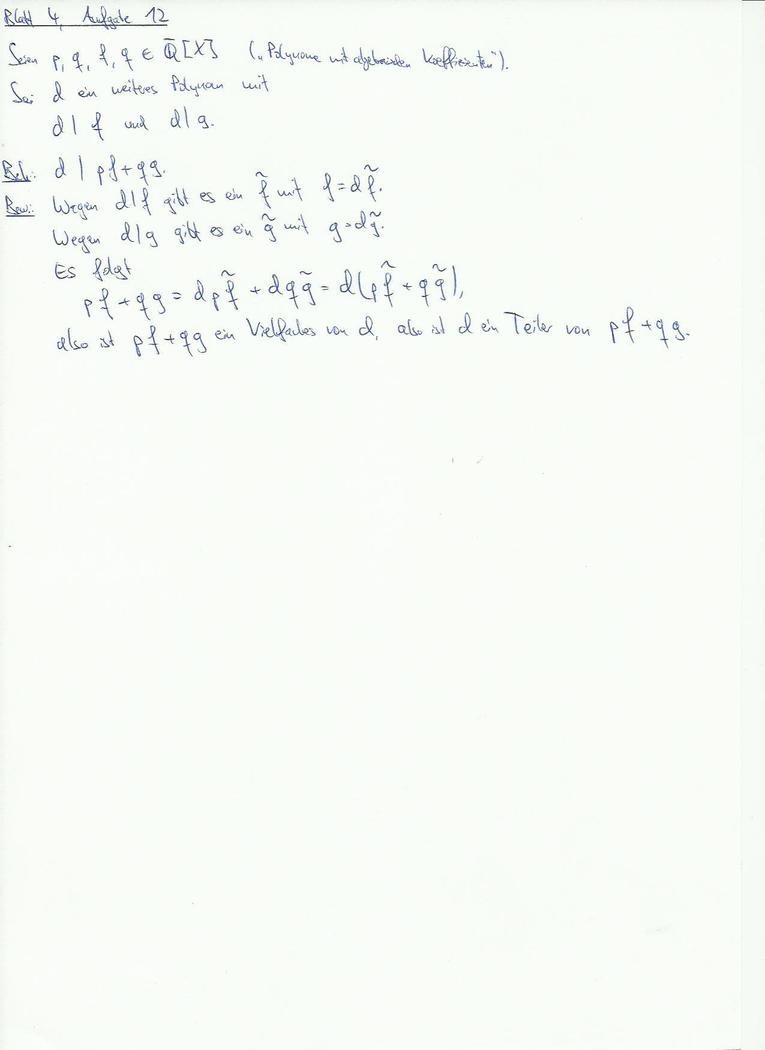 Blatt 4, Aufgabe 12
Seien p, q, f, g ∈ Q̄[X] („Polynome mit algebraischen Koeffizienten").
Sei d ein weiteres Polynom mit
d | f und d | g.
Beh.: d | pf + qg.
Bew.: Wegen d|f gibt es ein f̃ mit f = d f̃.
Wegen d|g gibt es ein g̃ mit g = d g̃.
Es folgt
pf + qg = d p f̃ + d q g̃ = d(p f̃ + q g̃),
also ist pf + qg ein Vielfaches von d, also ist d ein Teiler von pf + qg.